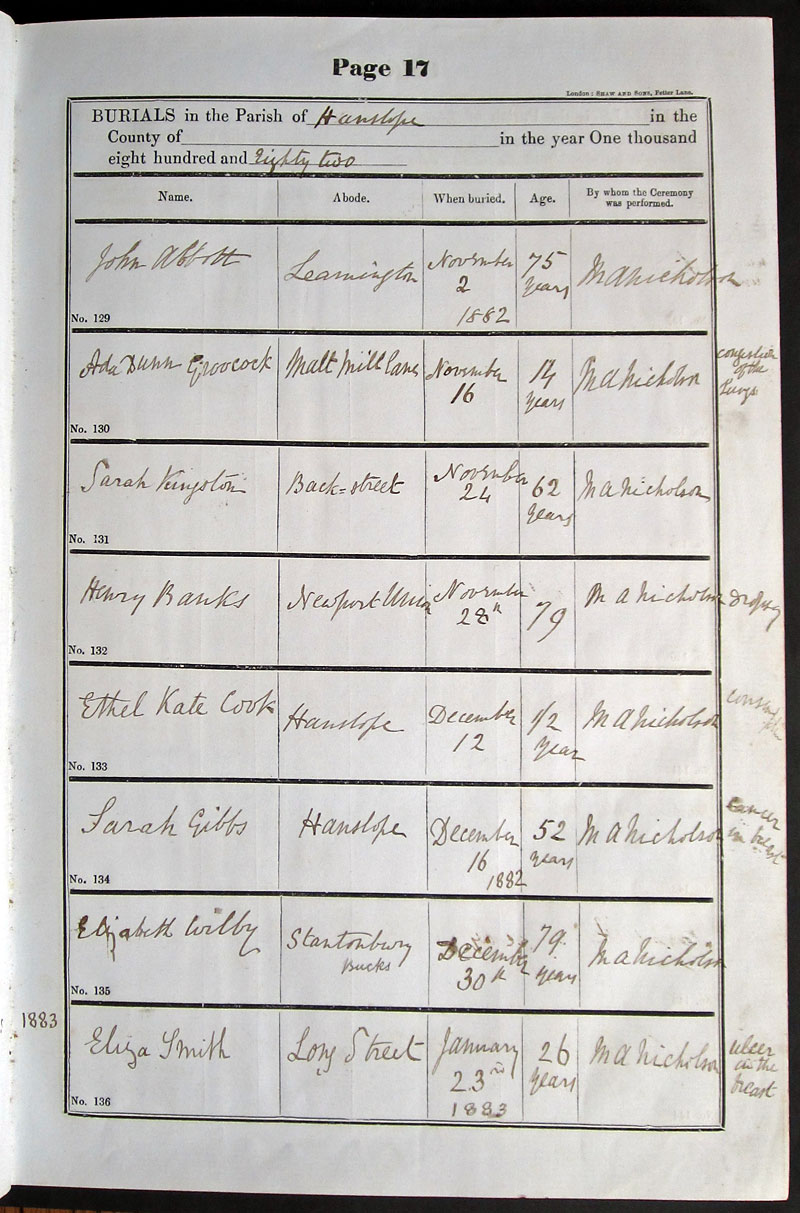 Page 17
London: SHAW AND SONS, Fetter Lane.
BURIALS in the Parish of Hanslope in the
County of in the year One thousand
eight hundred and Eighty two
Name. Abode. When buried. Age. By whom the Ceremony was performed.
John Abbott Leamington November 75 M A Nicholson
2 years
No. 129 1882
Ada Dunn Groocock Malt Mill Lane November 14 M A Nicholson congestion
16 years of the
No. 130 lungs
Sarah Kingston Back=street November 62 M A Nicholson
24 years
No. 131
Henry Banks Newport Union November 79 M A Nicholson dropsy
28th
No. 132
Ethel Kate Cook Hanslope December 1/2 M A Nicholson
12 year
No. 133
Sarah Gibbs Hanslope December 52 M A Nicholson cancer
16 years in breast
No. 134 1882
Elizabeth Wilby Stantonbury December 79 M A Nicholson
Bucks 30th years
No. 135
1883
Eliza Smith Long Street January 26 M A Nicholson ulcer
23rd years on the
No. 136 1883 breast